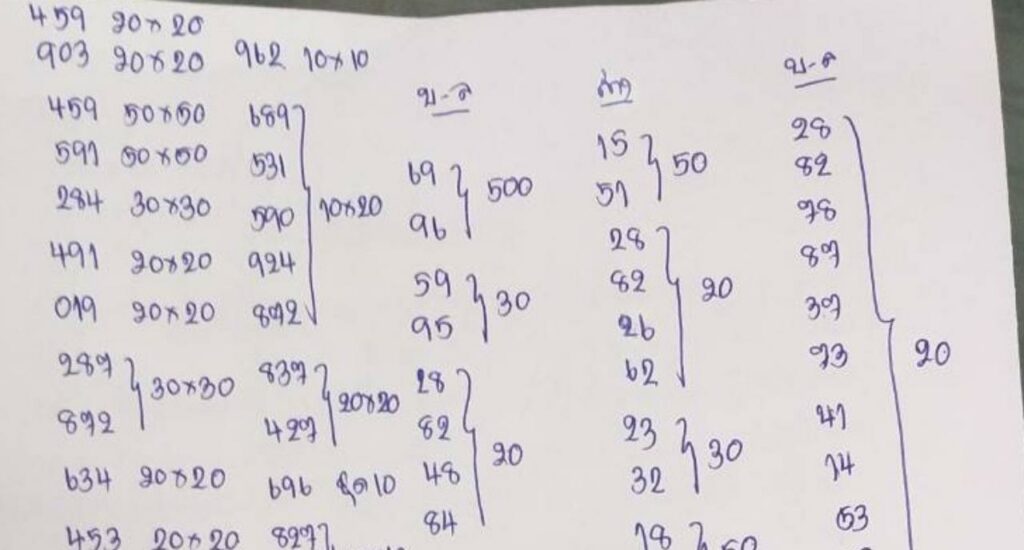 459 20×20
903 20×20
962 10×10
459 50×50
591 50×50
284 30×30
491 20×20
019 20×20
287
872
30×30
634 20×20
453 20×20
689
531
590
924
872
10×20
837
427
20×20
696 ชุด 10
827
บ-ล
69
96
500
59
95
30
28
82
48
84
20
ล่าง
15
51
50
28
82
26
62
20
23
32
30
18
50
บ-ล
28
82
78
87
37
73
41
14
53
20